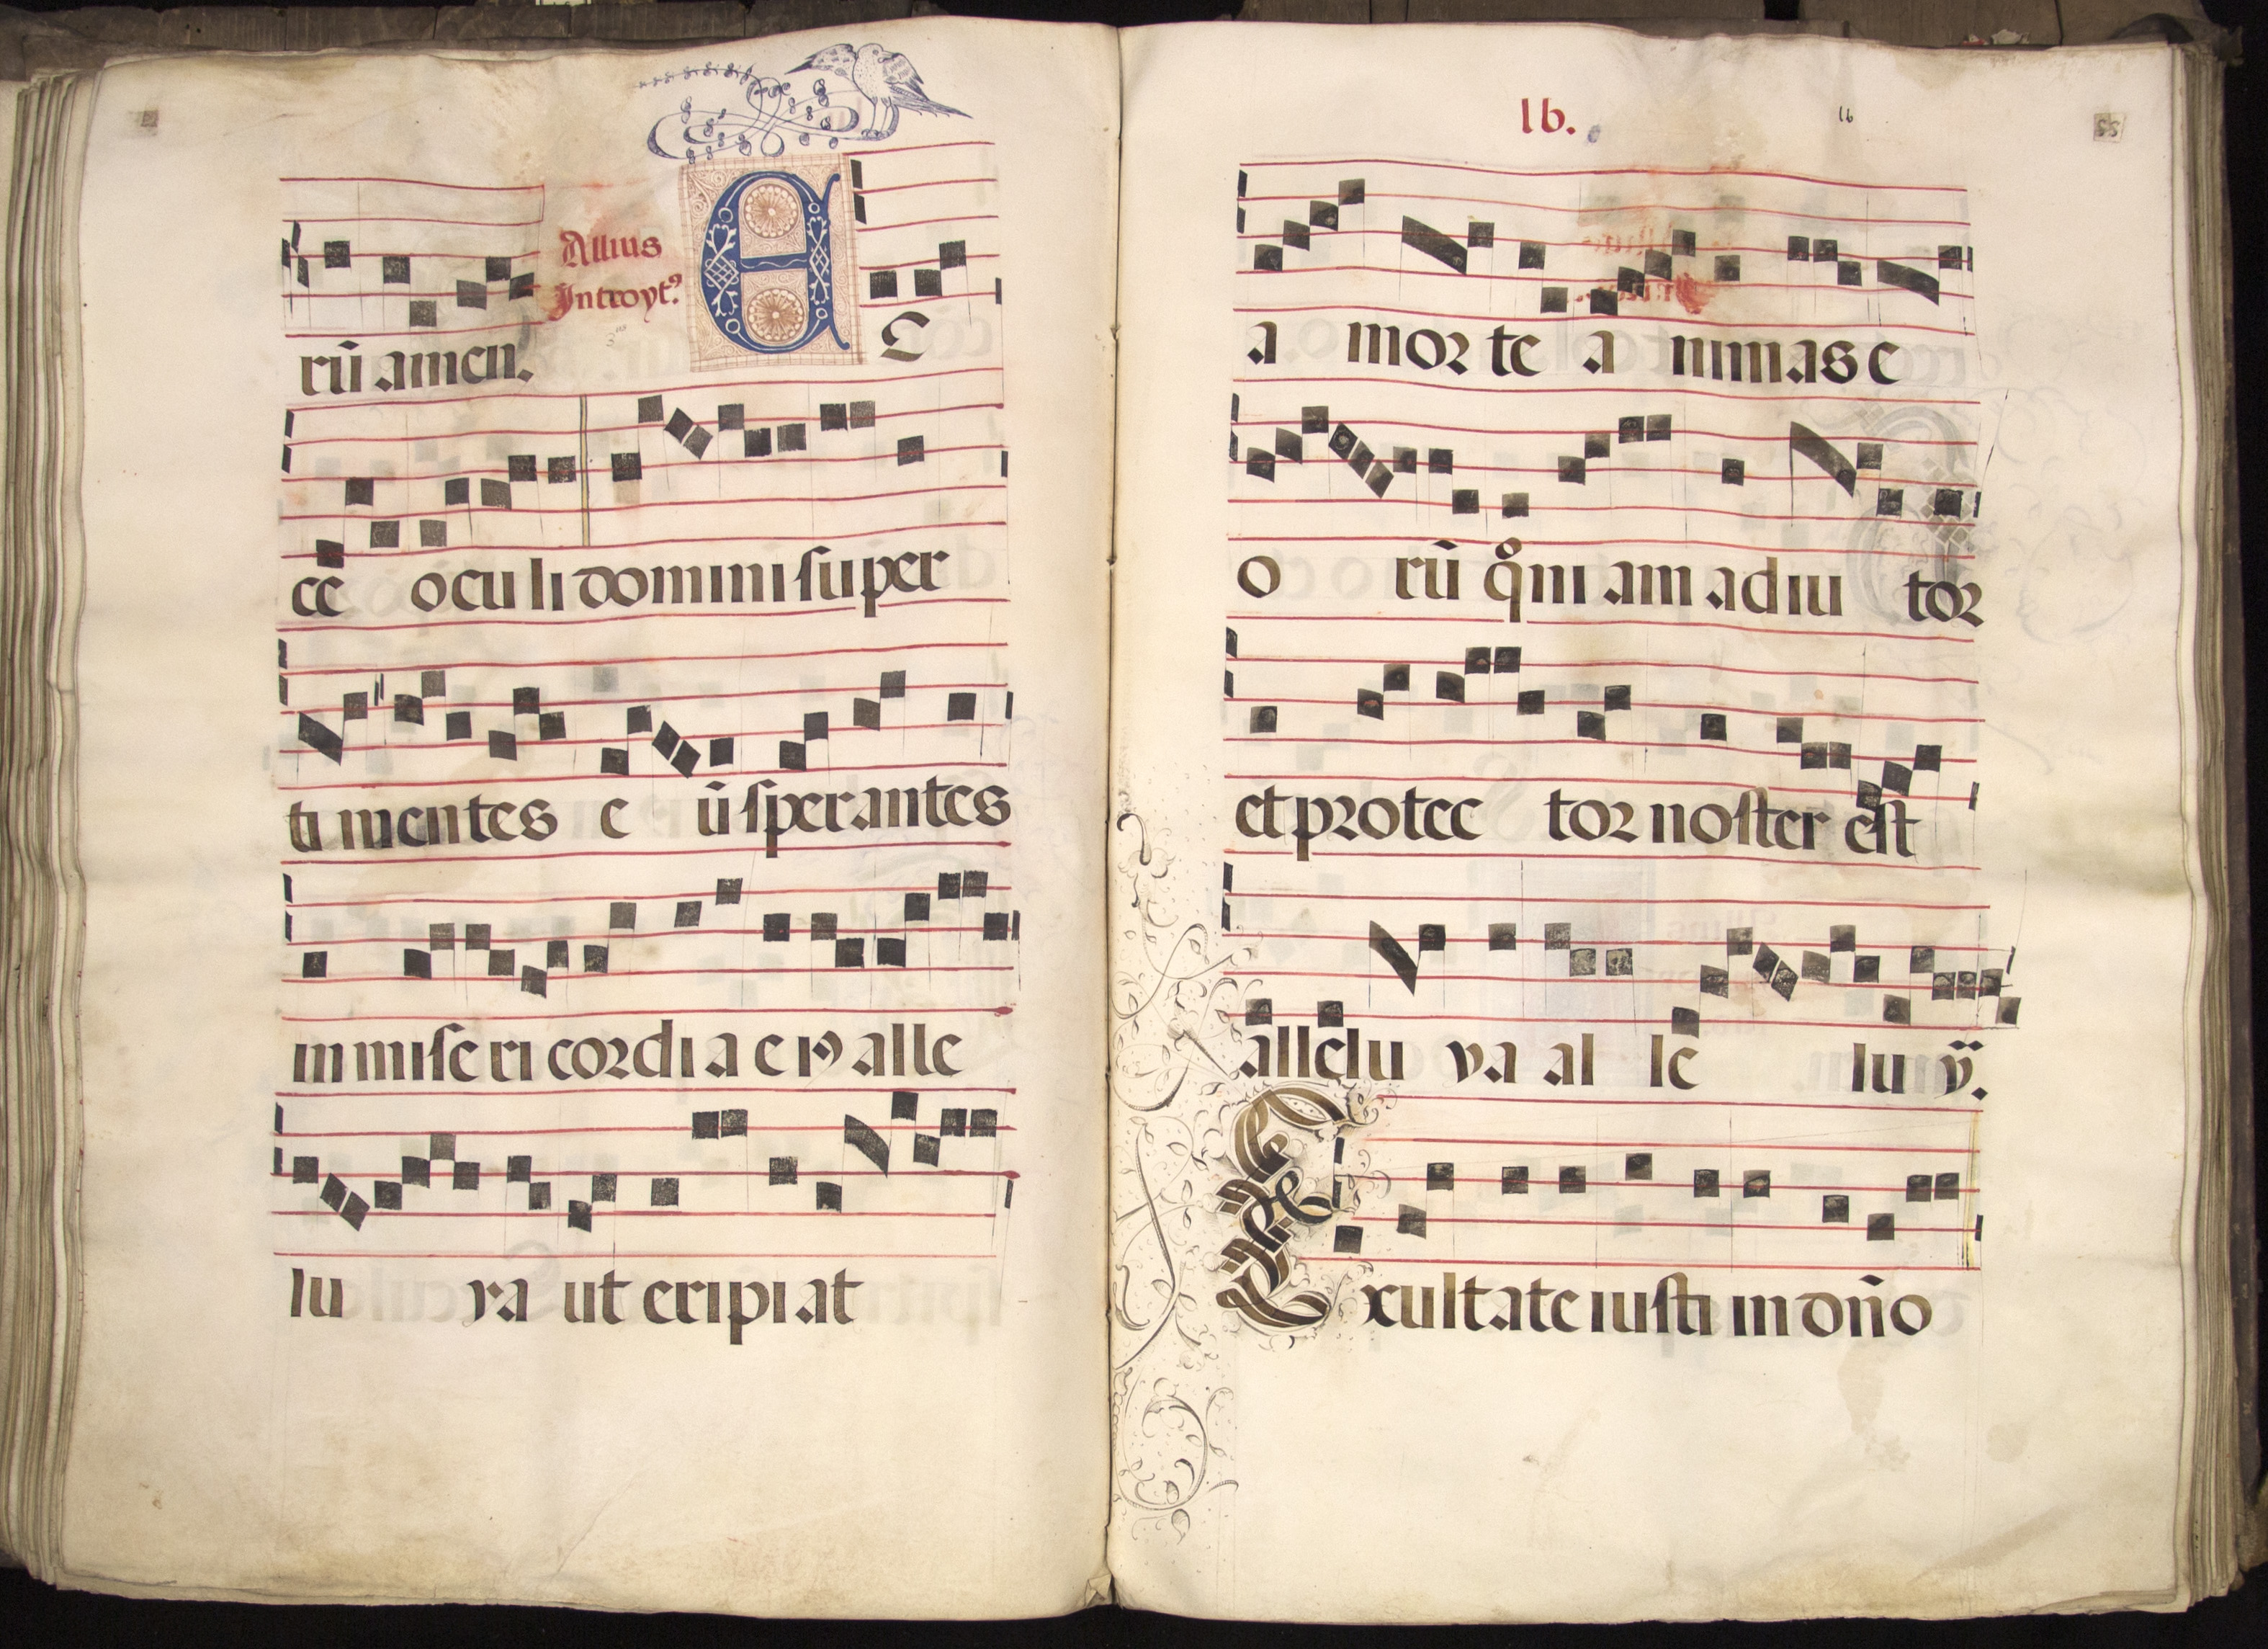 Allius
Introyt⁹
3us
rū amen. E C
cē oculi domini super
timentes e ū sperantes
in misericordia eiꝰ alle
lu ya ut eripiat
lb.
16
55
a morte animas e
o rū qm̄ iam adiu tor
et protec tor noster est
allelu ya al le lu ÿ.
Exultate iusti in dn̄o